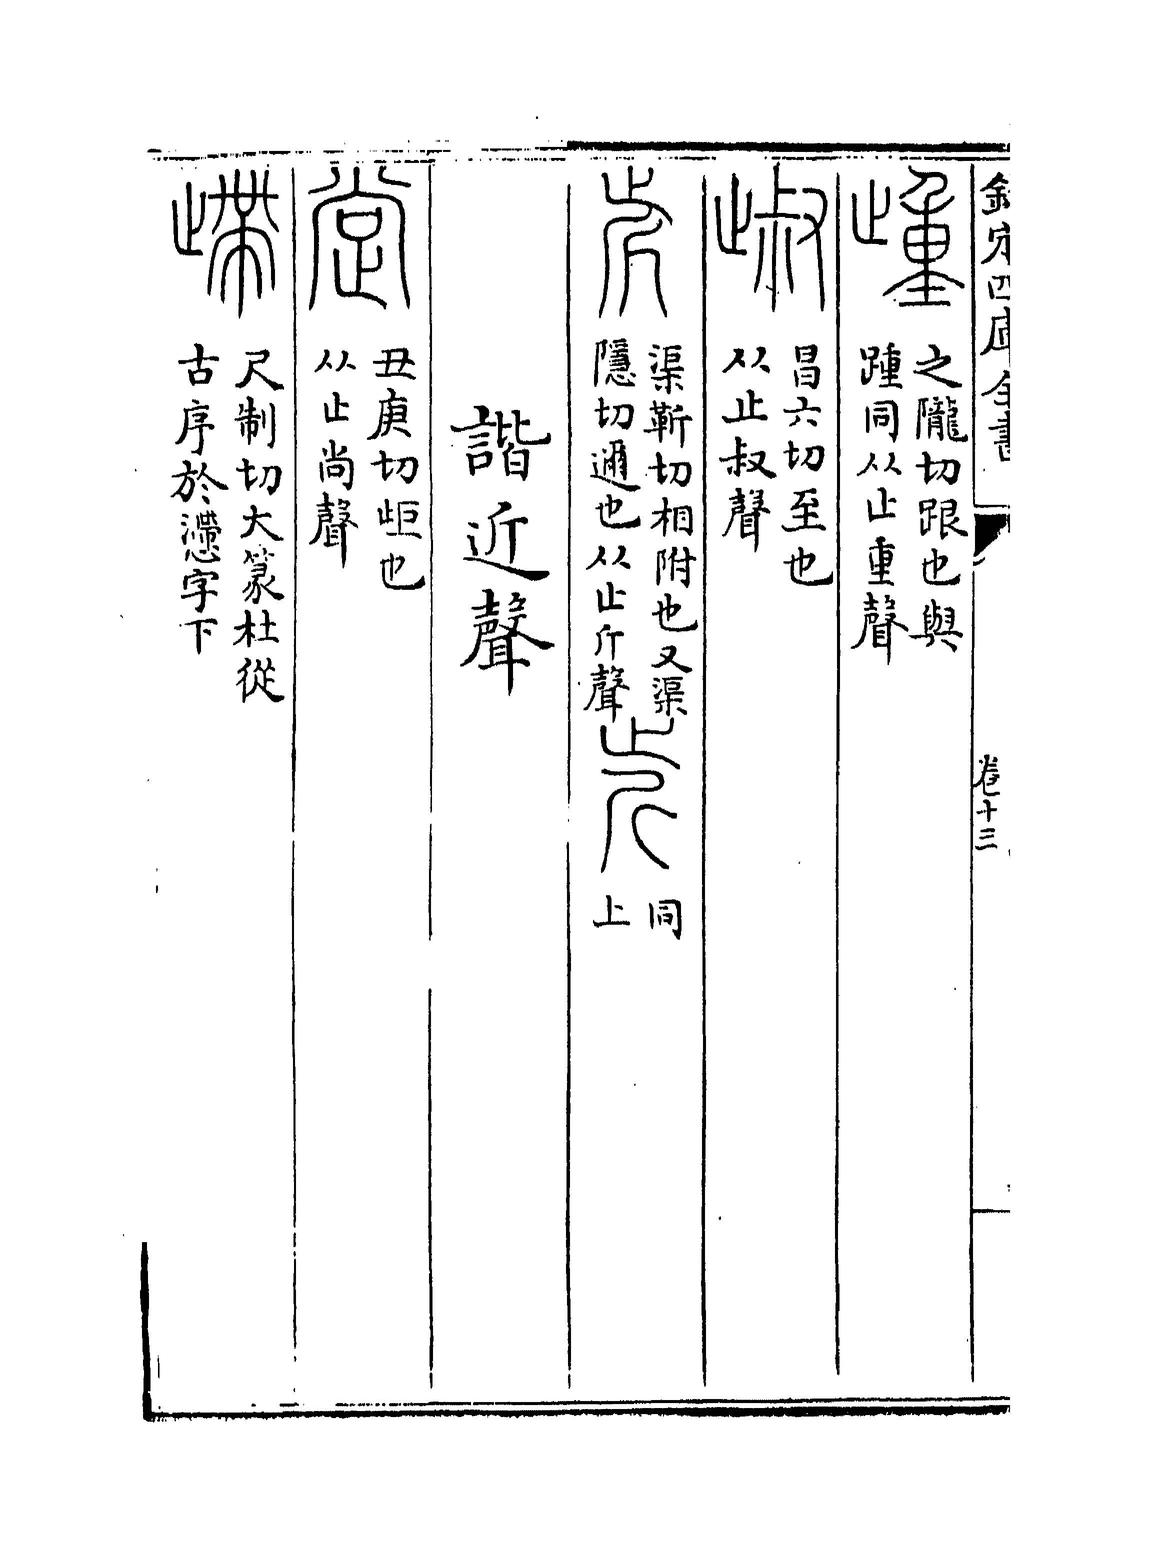 欽定四庫全書
卷十三
歱
之隴切跟也與
踵同从止重聲
昌六切至也
从止叔聲
渠靳切相附也又渠
隱切邇也从止斤聲
同
上
諧近聲
丑庚切歫也
从止尚聲
尺制切大篆杜從
古序於懘字下